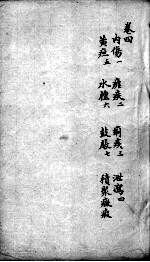 卷四
内傷一 瘧疾二 痢疾三 泄瀉四
黃疸五 水腫六 鼓脹七 積聚癥瘕